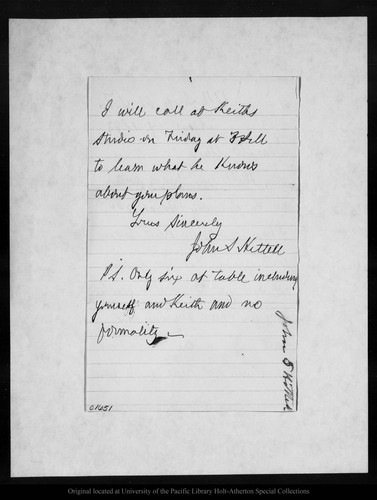 I will call at Keiths
studio on Friday at
to learn what he knows
about your plans.
Yours Sincerely
John S Hittell
P.S. Only six at table including
yourself and Keith and no
formality
John S Hittell
01051
Original located at University of the Pacific Library Holt-Atherton Special Collections